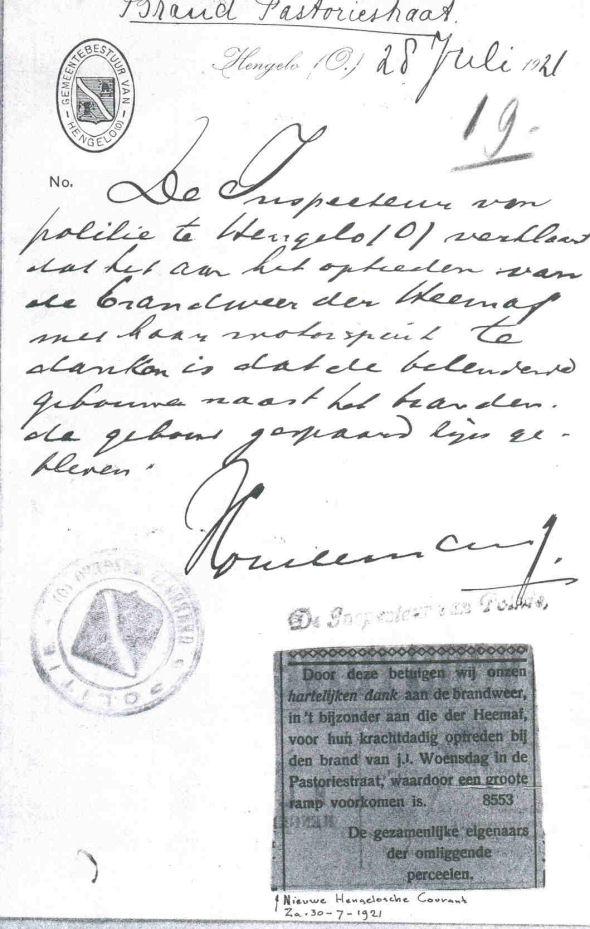 Brand Pastoriestraat.
GEMEENTEBESTUUR VAN HENGELO(O)
Hengelo (O.) 28 Juli 1921
19.-
No.
De Inspecteur van
politie te Hengelo (O) verklaart
dat het aan het optreden van
de brandweer der Heemaf
met haar motorspuit te
danken is dat de belendende
gebouwen naast het branden-
de gebouw gespaard zijn ge-
bleven.
De Inspecteur van Politie,
POLITIE
Door deze betuigen wij onzen
hartelijken dank aan de brandweer,
in 't bijzonder aan die der Heemaf,
voor hun krachtdadig optreden bij
den brand van j.l. Woensdag in de
Pastoriestraat, waardoor een groote
ramp voorkomen is. 8553
De gezamenlijke eigenaars
der omliggende
perceelen.
Nieuwe Hengelosche Courant
Za. 30-7-1921